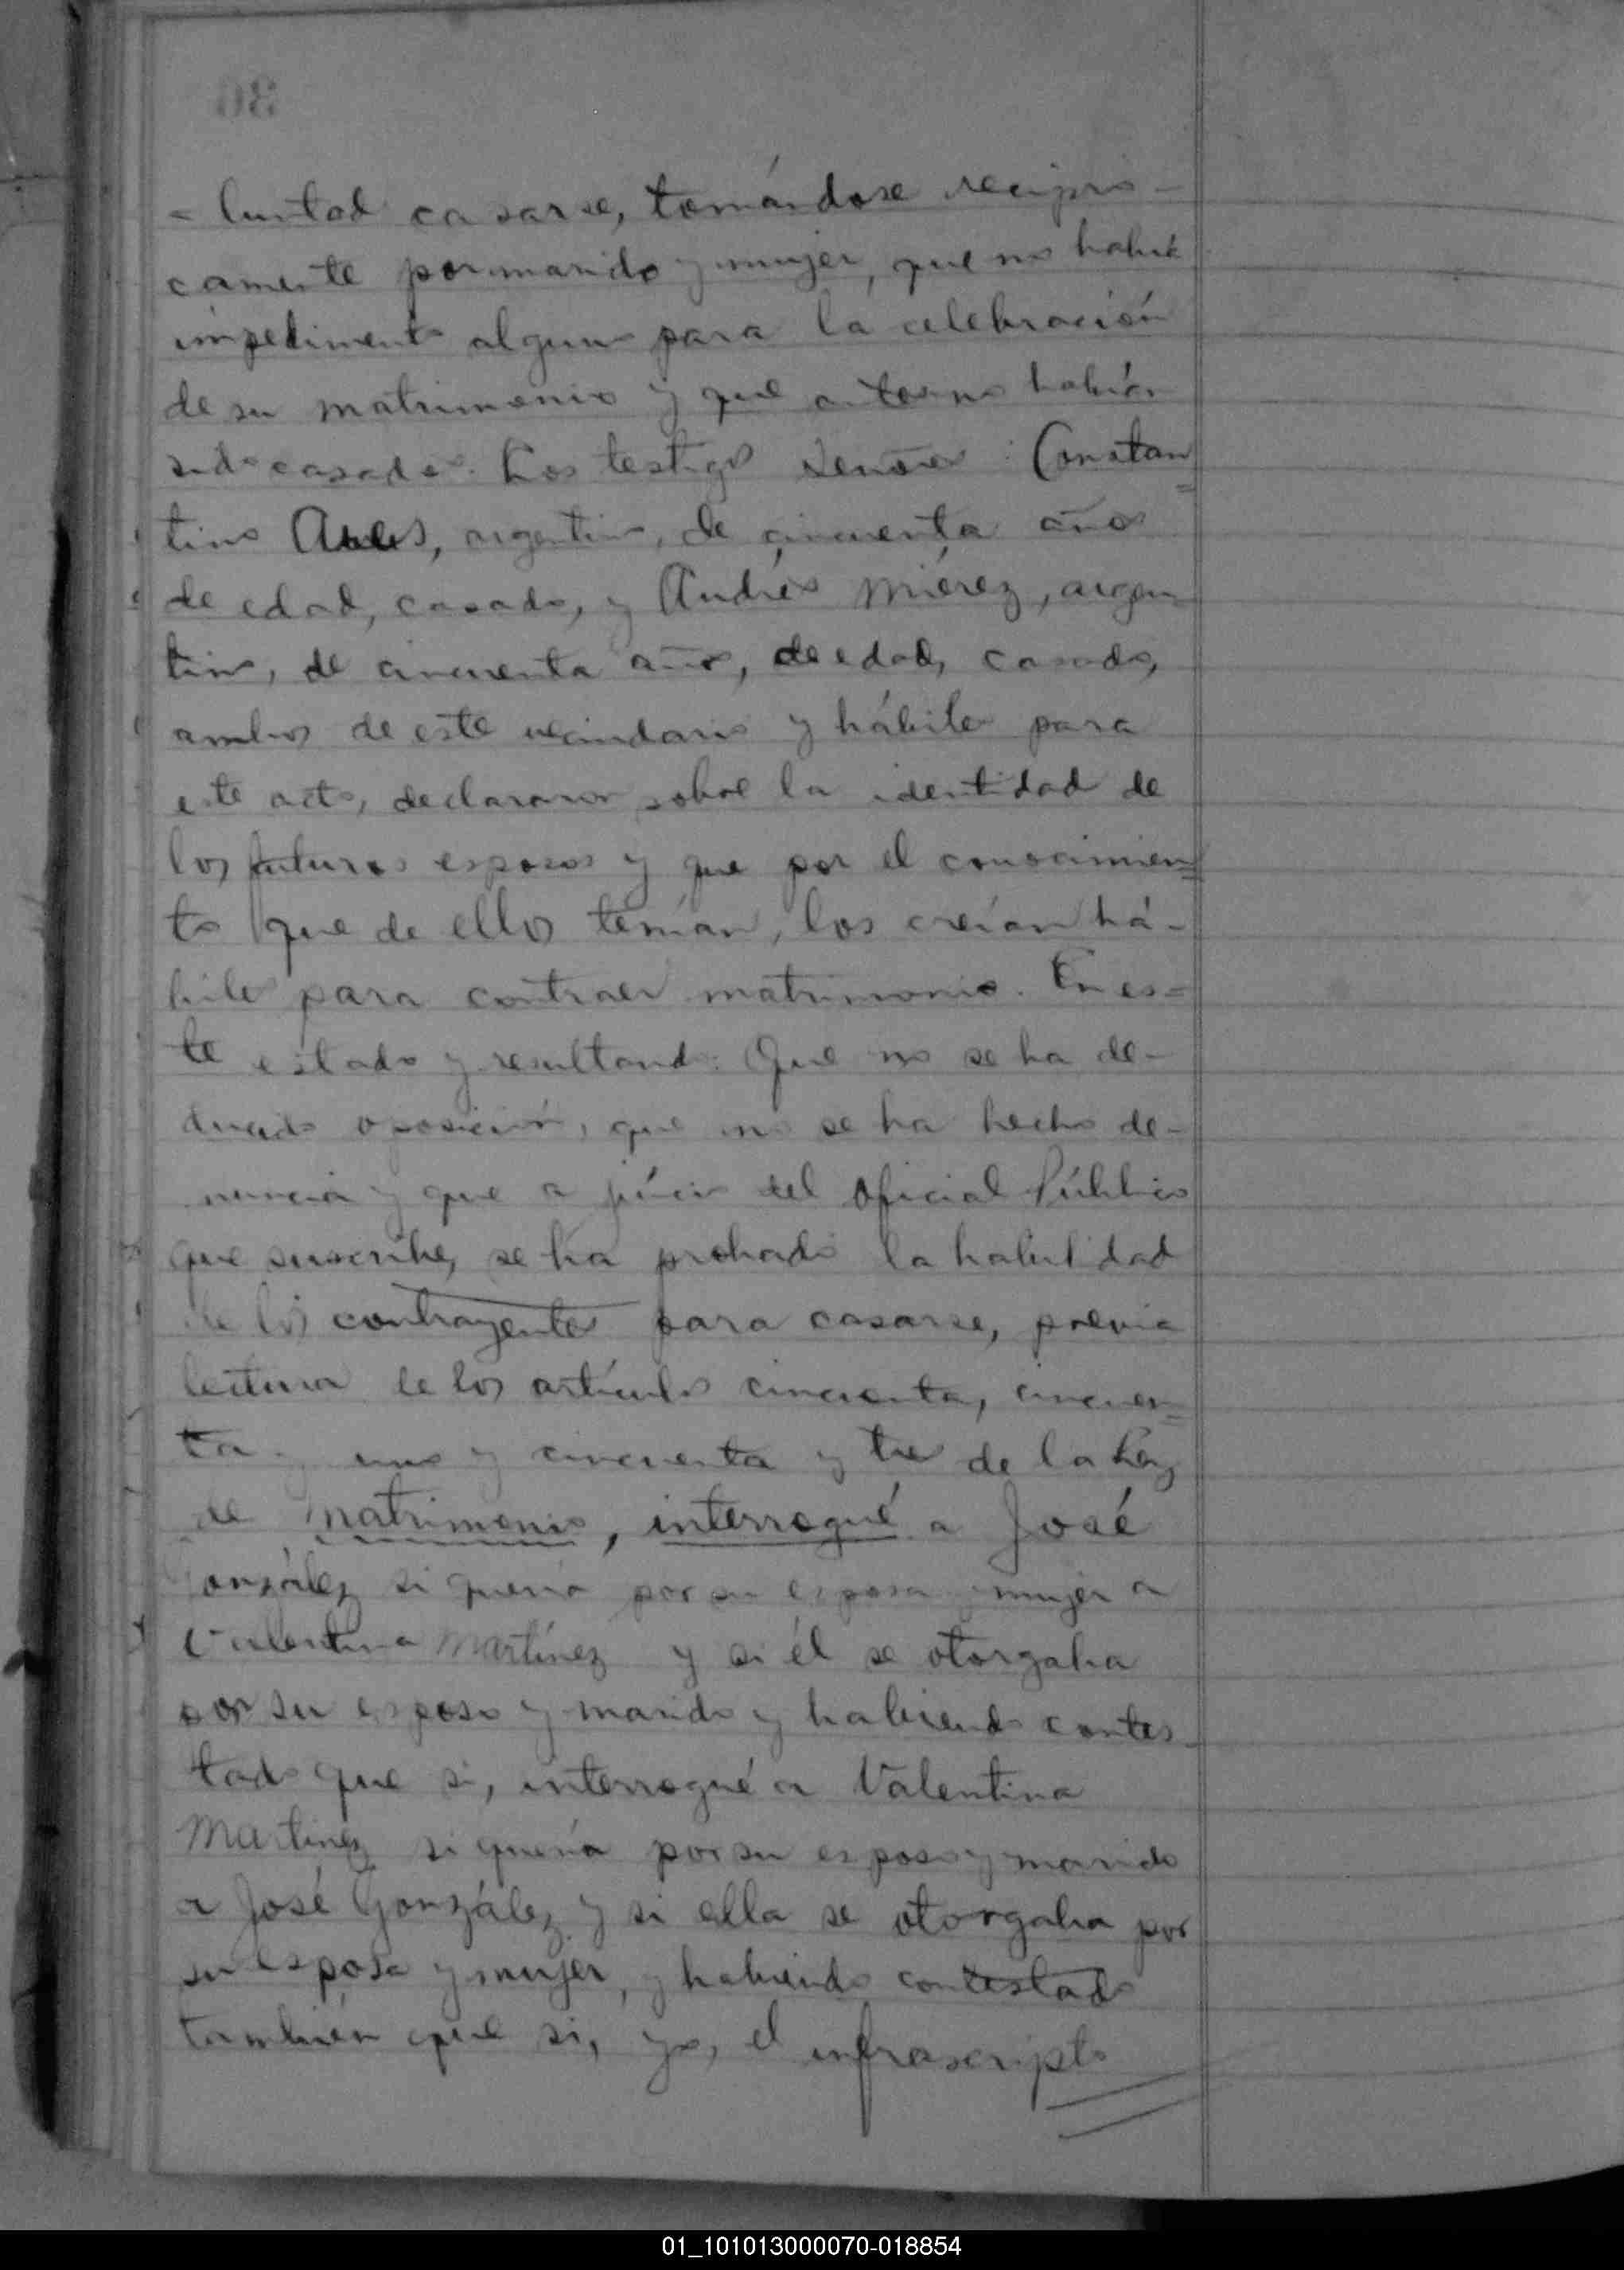 = luntad casarse, tomándose recípro-
camente por marido y mujer, que no había
impedimento alguno para la celebración
de su matrimonio y que antes no habían
sido casados. Los testigos señores: Constan=
tino, argentino, de cincuenta años
de edad, casado, y Andrés Miérez, argen=
tino, de cincuenta años, de edad, casado,
ambos de este vecindario y hábiles para
este acto, declararon sobre la identidad de
los futuros esposos y que por el conocimien=
to que de ellos tenían, los creían há-
biles para contraer matrimonio. En es=
te estado y resultando: Que no se ha de-
ducido oposición, que no se ha hecho de-
nuncia y que a júicio del Oficial Público
que suscribe, se ha probado la habilidad
de los contrayentes para casarse, previa
lectura de los artículos cincuenta, cincuen=
ta y uno y cincuenta y tres de la Ley
de matrimonio, interrogué a José
González si quería por su esposa y mujer a
Valentina Martínez y si él se otorgaba
por su esposo y marido y habiendo contes-
tado que si, interrogué a Valentina
Martinez si quería por su esposo y marido
a José González y si ella se otorgaba por
su esposa y mujer, y habiendo contestado
también que si, yo, el infrascripto
01_101013000070-018854